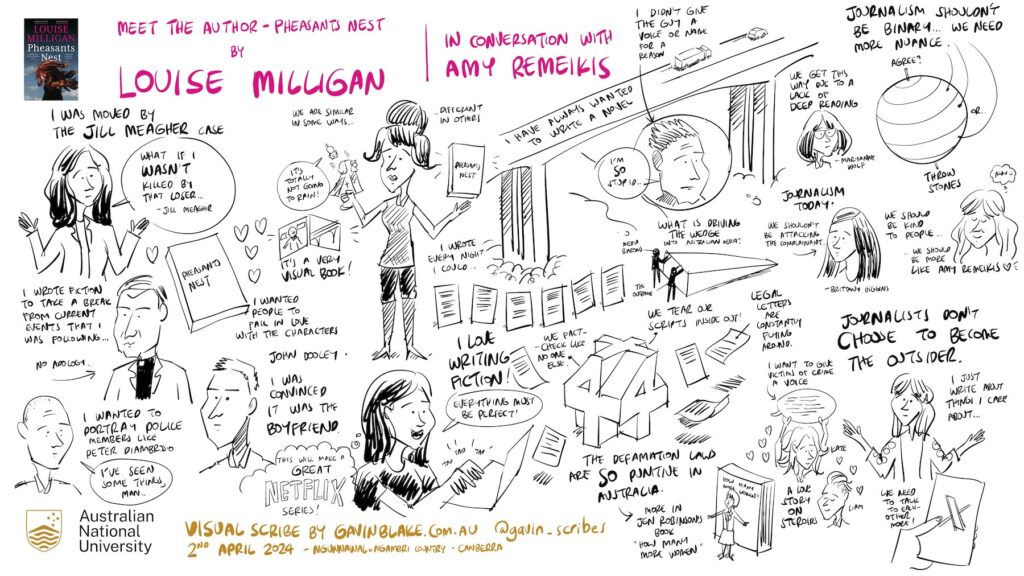 LOUISE
MILLIGAN
Pheasants
Nest
MEET THE AUTHOR - PHEASANTS NEST
BY
LOUISE MILLIGAN
IN CONVERSATION WITH
AMY REMEIKIS
I WAS MOVED BY
THE JILL MEAGHER CASE
WHAT IF I
WASN'T
KILLED BY
THAT LOSER...
- JILL MEAGHER
PHEASANTS
NEST
I WROTE FICTION
TO TAKE A BREAK
FROM CURRENT
EVENTS THAT I
WAS FOLLOWING...
NO APOLOGY..
I WANTED TO
PORTRAY POLICE
MEMBERS LIKE
PETER DIAMBRIO
I'VE SEEN
SOME THINGS
MAN..
WE ARE SIMILAR
IN SOME WAYS...
...DIFFERENT
IN OTHERS
IT'S
TOTALLY
NOT GOING
TO RAIN!
PHEASANTS
NEST
IT'S A VERY
VISUAL BOOK!
I WANTED
PEOPLE TO
FALL IN LOVE
WITH THE CHARACTERS
JOHN DOOLEY.
I WAS
CONVINCED
IT WAS THE
BOYFRIEND.
THIS WILL MAKE A
GREAT
NETFLIX
SERIES!
I WROTE
EVERY NIGHT
I COULD...
I LOVE
WRITING
FICTION!
EVERYTHING MUST
BE PERFECT!
TAP TAP
TAP
I HAVE ALWAYS WANTED
TO WRITE A NOVEL
I DIDN'T GIVE
THE GUY A
VOICE OR NAME
FOR A
REASON
I'M
SO
STUPID..
WHAT IS DRIVING
THE WEDGE
INTO AUSTRALIAN MEDIA?
MEDIA
BARONS
THE
OUTRAGE
WE FACT-
CHECK LIKE
NO ONE
ELSE.
WE TEAR OUR
SCRIPTS INSIDE OUT!
LEGAL
LETTERS
ARE
CONSTANTLY
FLYING
AROUND.
44
THE DEFAMATION LAWS
ARE SO PUNITIVE IN
AUSTRALIA.
MORE IN
JEN ROBINSONS
BOOK
"HOW MANY
MORE WOMEN"
HOW MANY
MORE WOMEN?
WE GET THIS
WAY DUE TO A
LACK OF
DEEP READING
- MARYANNE
WOLF
JOURNALISM SHOULDN'T
BE BINARY... WE NEED
MORE NUANCE.
AGREE?
OR...
THROW
STONES
JOURNALISM
TODAY.
WE SHOULDN'T
BE ATTACKING
THE COMPLAINANT..
- BRITTANY HIGGINS
WE SHOULD
BE KIND
TO PEOPLE...
WE SHOULD
BE MORE
LIKE AMY REMEIKIS
JOURNALISTS DON'T
CHOOSE TO BECOME
THE OUTSIDER.
I WANT TO GIVE
VICTIMS OF CRIME
A VOICE
KATE
LIAM
A LOVE
STORY
ON
STEROIDS
I JUST
WRITE ABOUT
THINGS I CARE
ABOUT...
WE NEED
TO TALK
TO EACH-
OTHER
MORE!
X
Australian
National
University
VISUAL SCRIBE BY GAVINBLAKE.COM.AU @gavin_scribes
2ND APRIL 2024 - NGUNNAWAL & NGAMBRI COUNTRY - CANBERRA